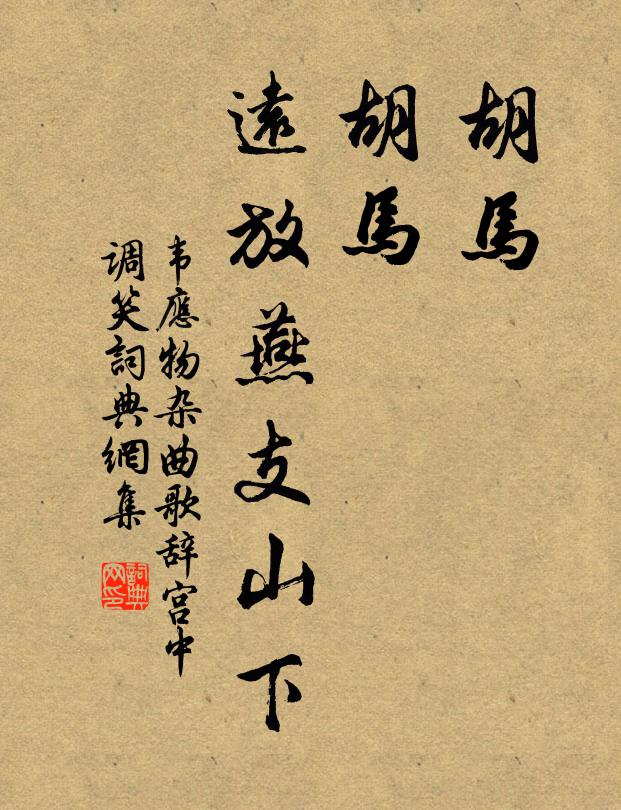 胡馬
胡馬
遠放燕支山下
韦應物杂曲歌辞宫中
调笑詞典網集
詞典
网印